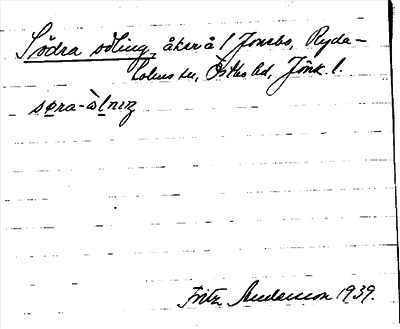 Södra sdling, åker å 1 Jonsbo, Ryda-
holms sn, Östbo hd, Jönk. l.
søra-àlnıŋ
Fritz Andersson 1939.